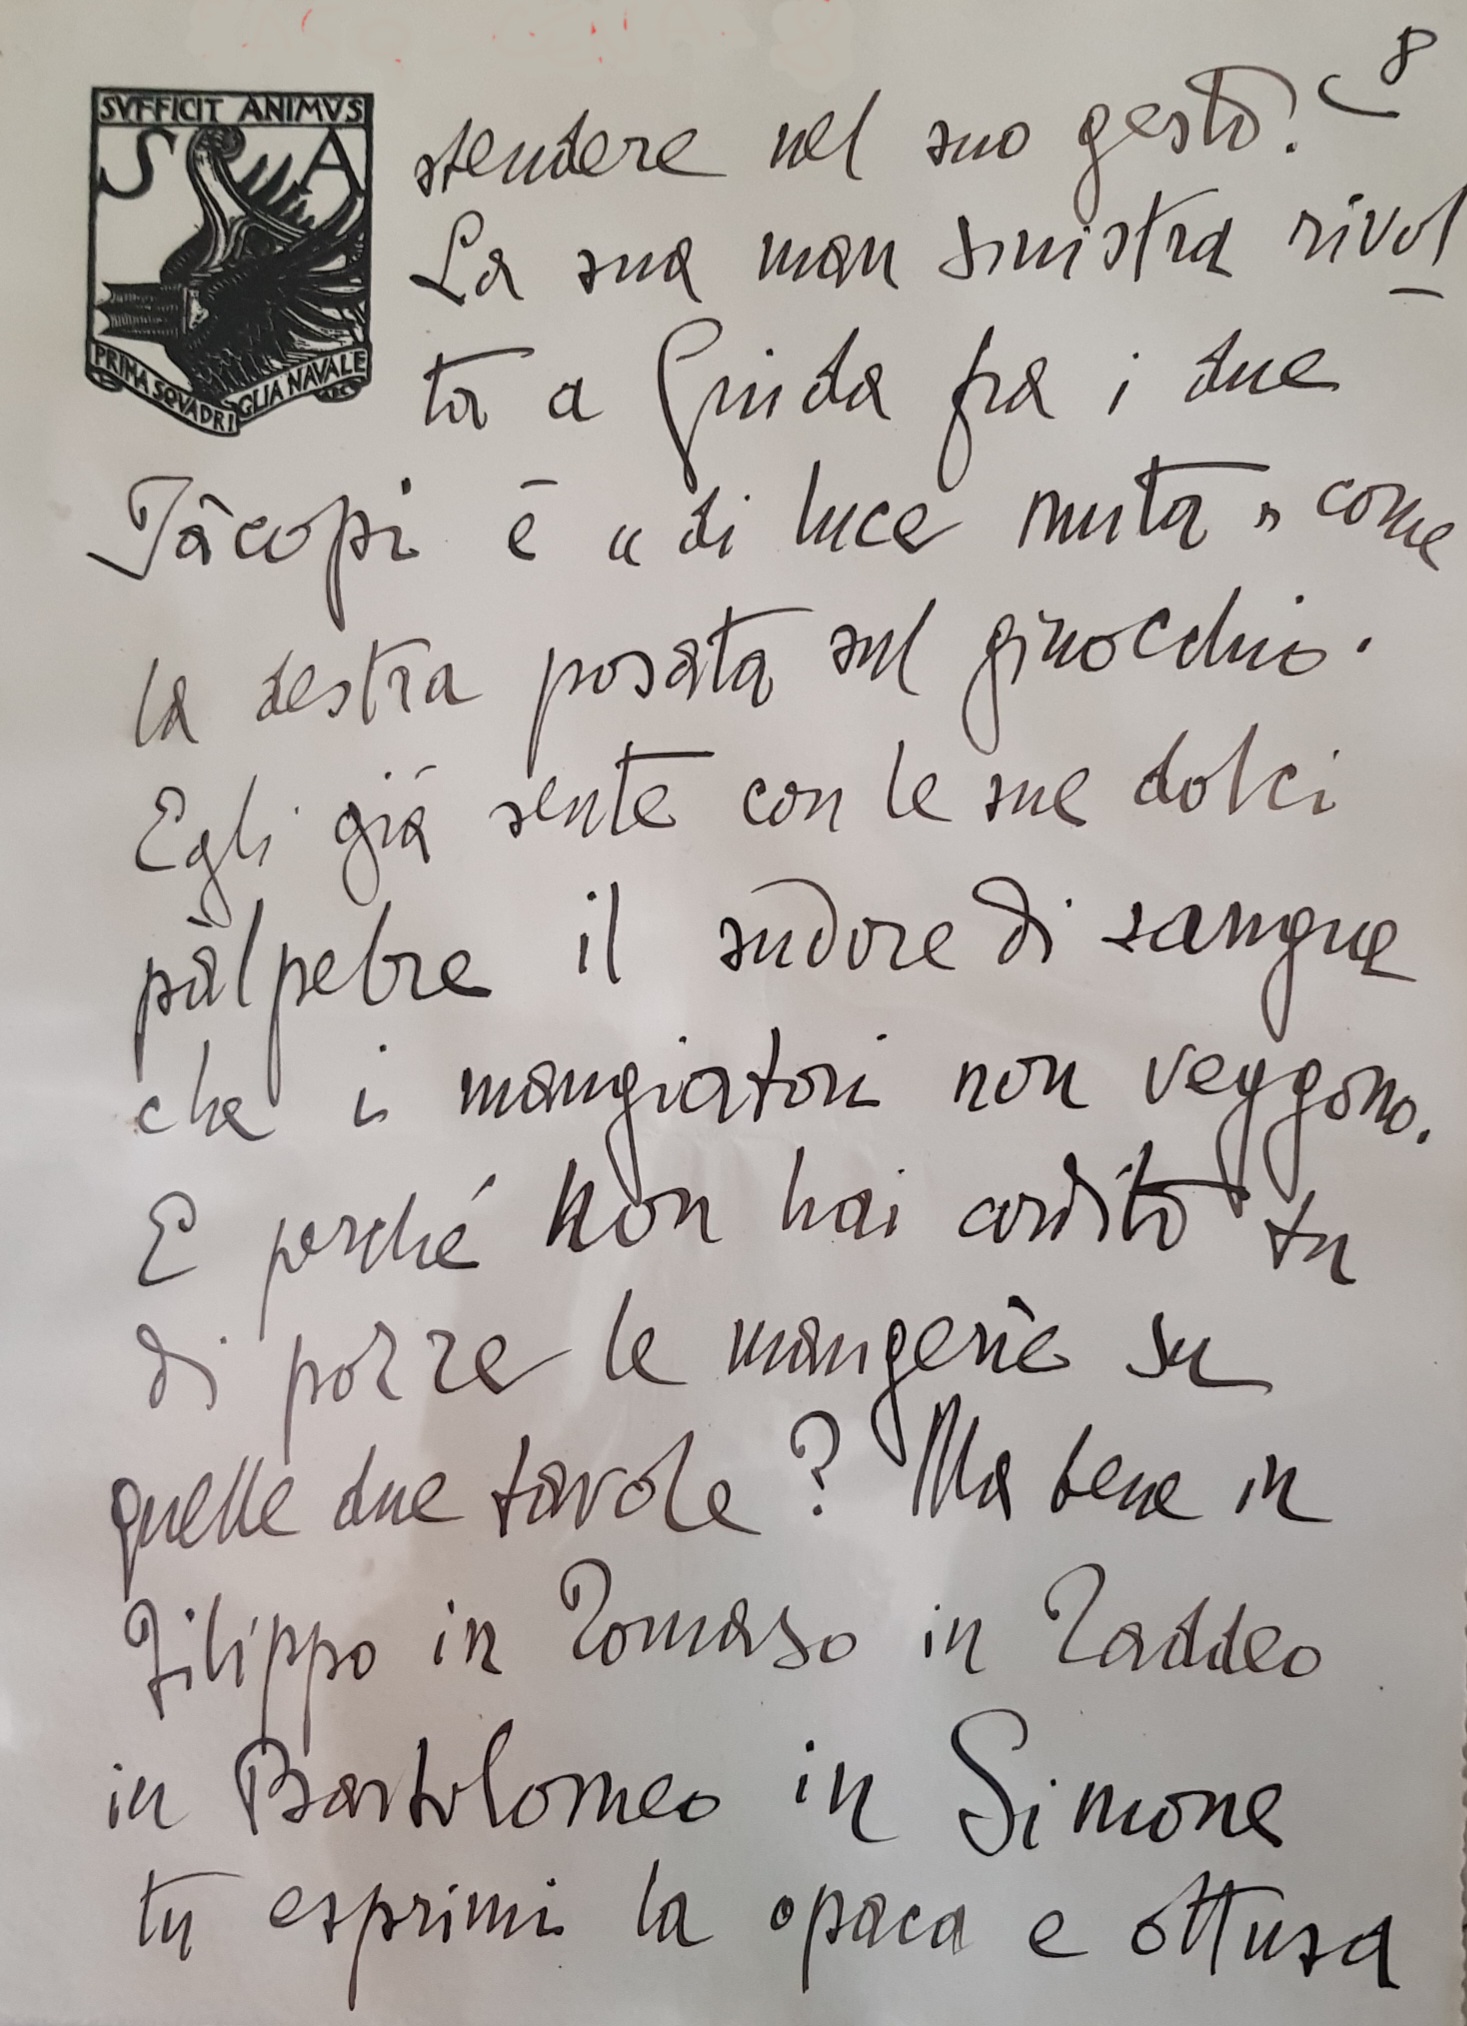 8
SVFFICIT ANIMVS
S A
PRIMA SQVADRIGLIA NAVALE
stendere nel suo gesto?
La sua man sinistra rivol
ta a Giuda fra i due
Jàcopi è « di luce muta » come
la destra posata sul ginocchio.
Egli già sente con le sue dolci
pàlpebre il sudore di sangue
che i mangiatori non veggono.
E perché non hai ardito tu
di porre le mangerìe su
quelle due tavole? Ma bene in
Filippo in Tomaso in Taddeo
in Bartolomeo in Simone
tu esprimi la opaca e ottusa